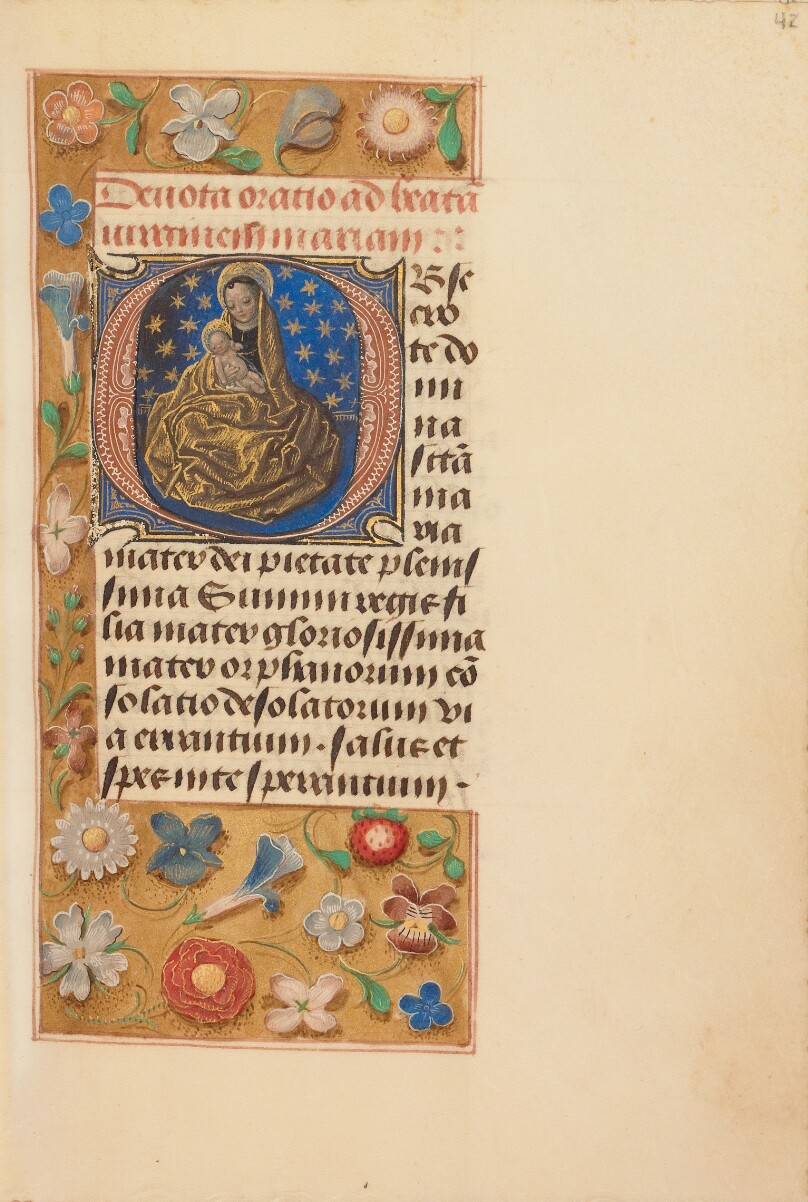 42
Deuota oratio ad beatā
uirginem mariam
O
Bse
cro
te do
mi
na
sctā
ma
ria
mater dei pietate plenis
sima Summi regis fi
lia mater gloriosissima
mater orphanorum cō
solatio desolatorum vi
a errantium · salus et
spes in te sperantium ·